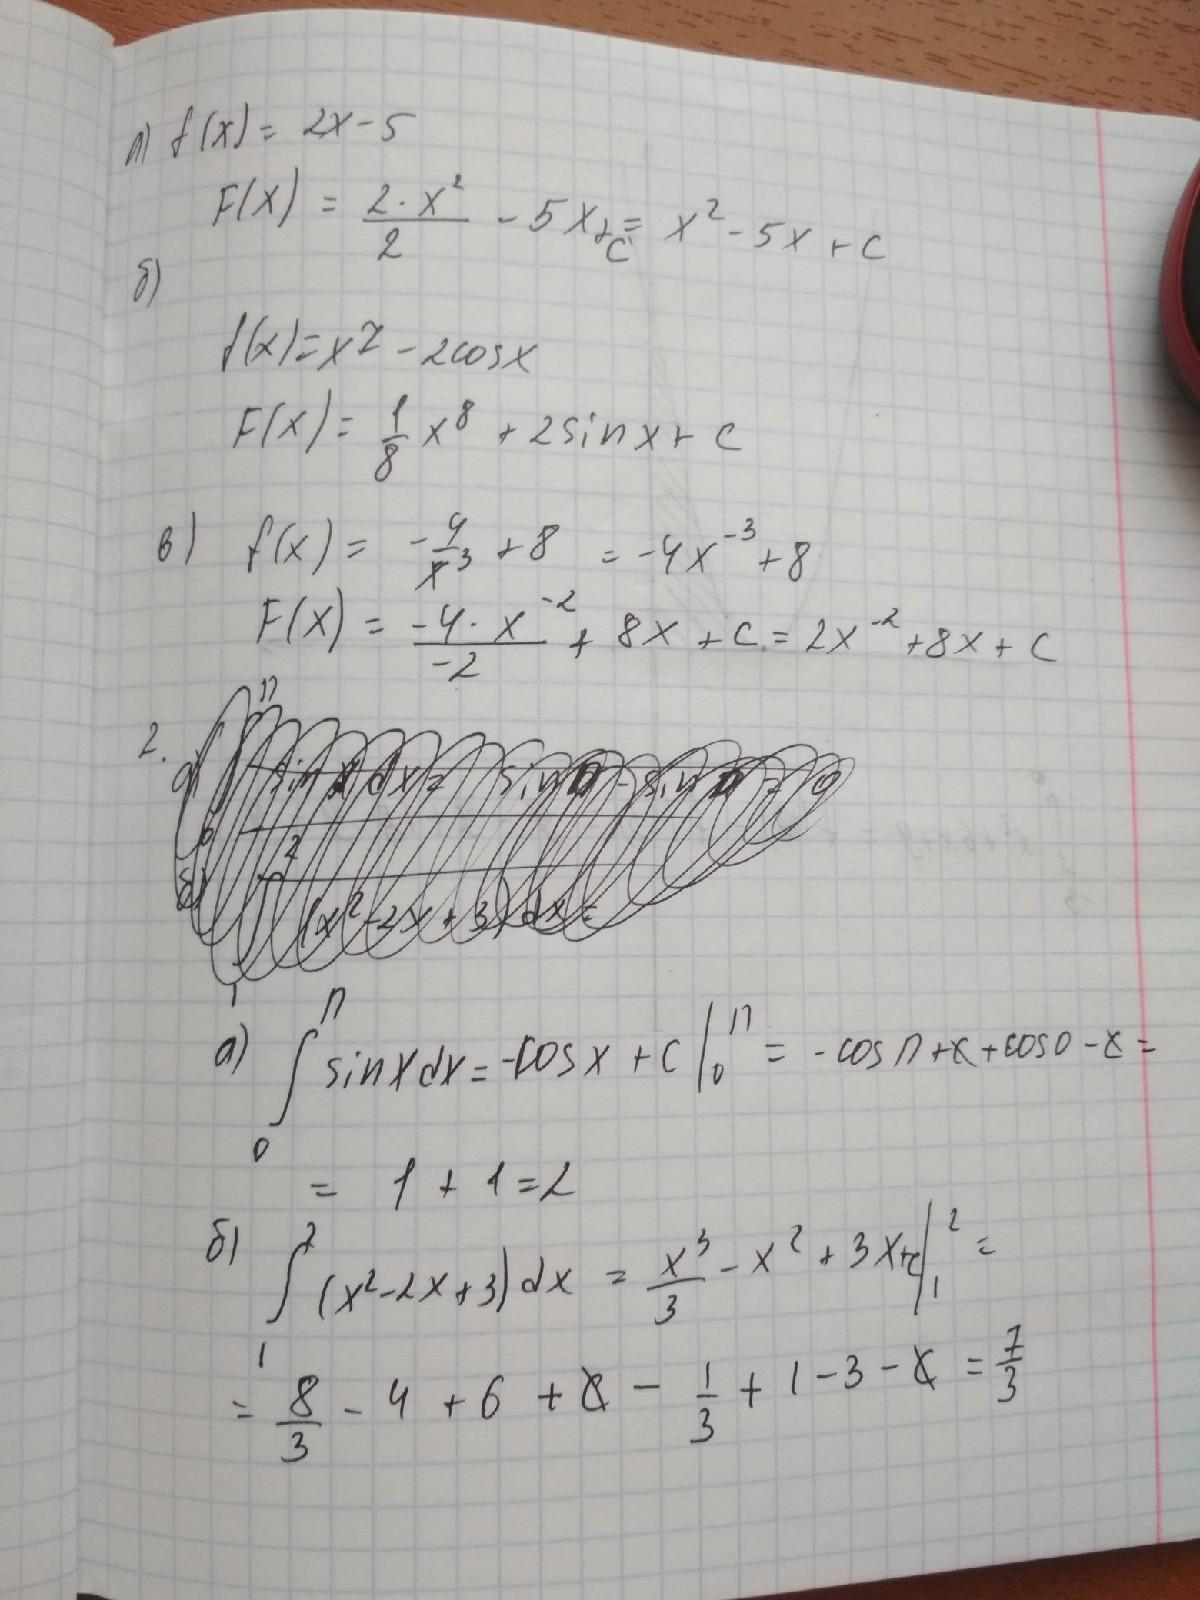 а) f(x) = 2x - 5
F(x) = 2·x²/2 - 5x + C = x² - 5x + C
б)
f(x) = x⁷ - 2cosx
F(x) = 1/8 x⁸ + 2sinx + C
в) f(x) = -4/x³ + 8 = -4x⁻³ + 8
F(x) = -4·x⁻²/-2 + 8x + C = 2x⁻² + 8x + C
2.
а) ∫₀ᴨ sinxdx = -cosx + C |₀ᴨ = -cosп + C + cos0 - C =
= 1 + 1 = 2
б) ∫₁² (x² - 2x + 3)dx = x³/3 - x² + 3x + C |₁² =
= 8/3 - 4 + 6 + C - 1/3 + 1 - 3 - C = 7/3